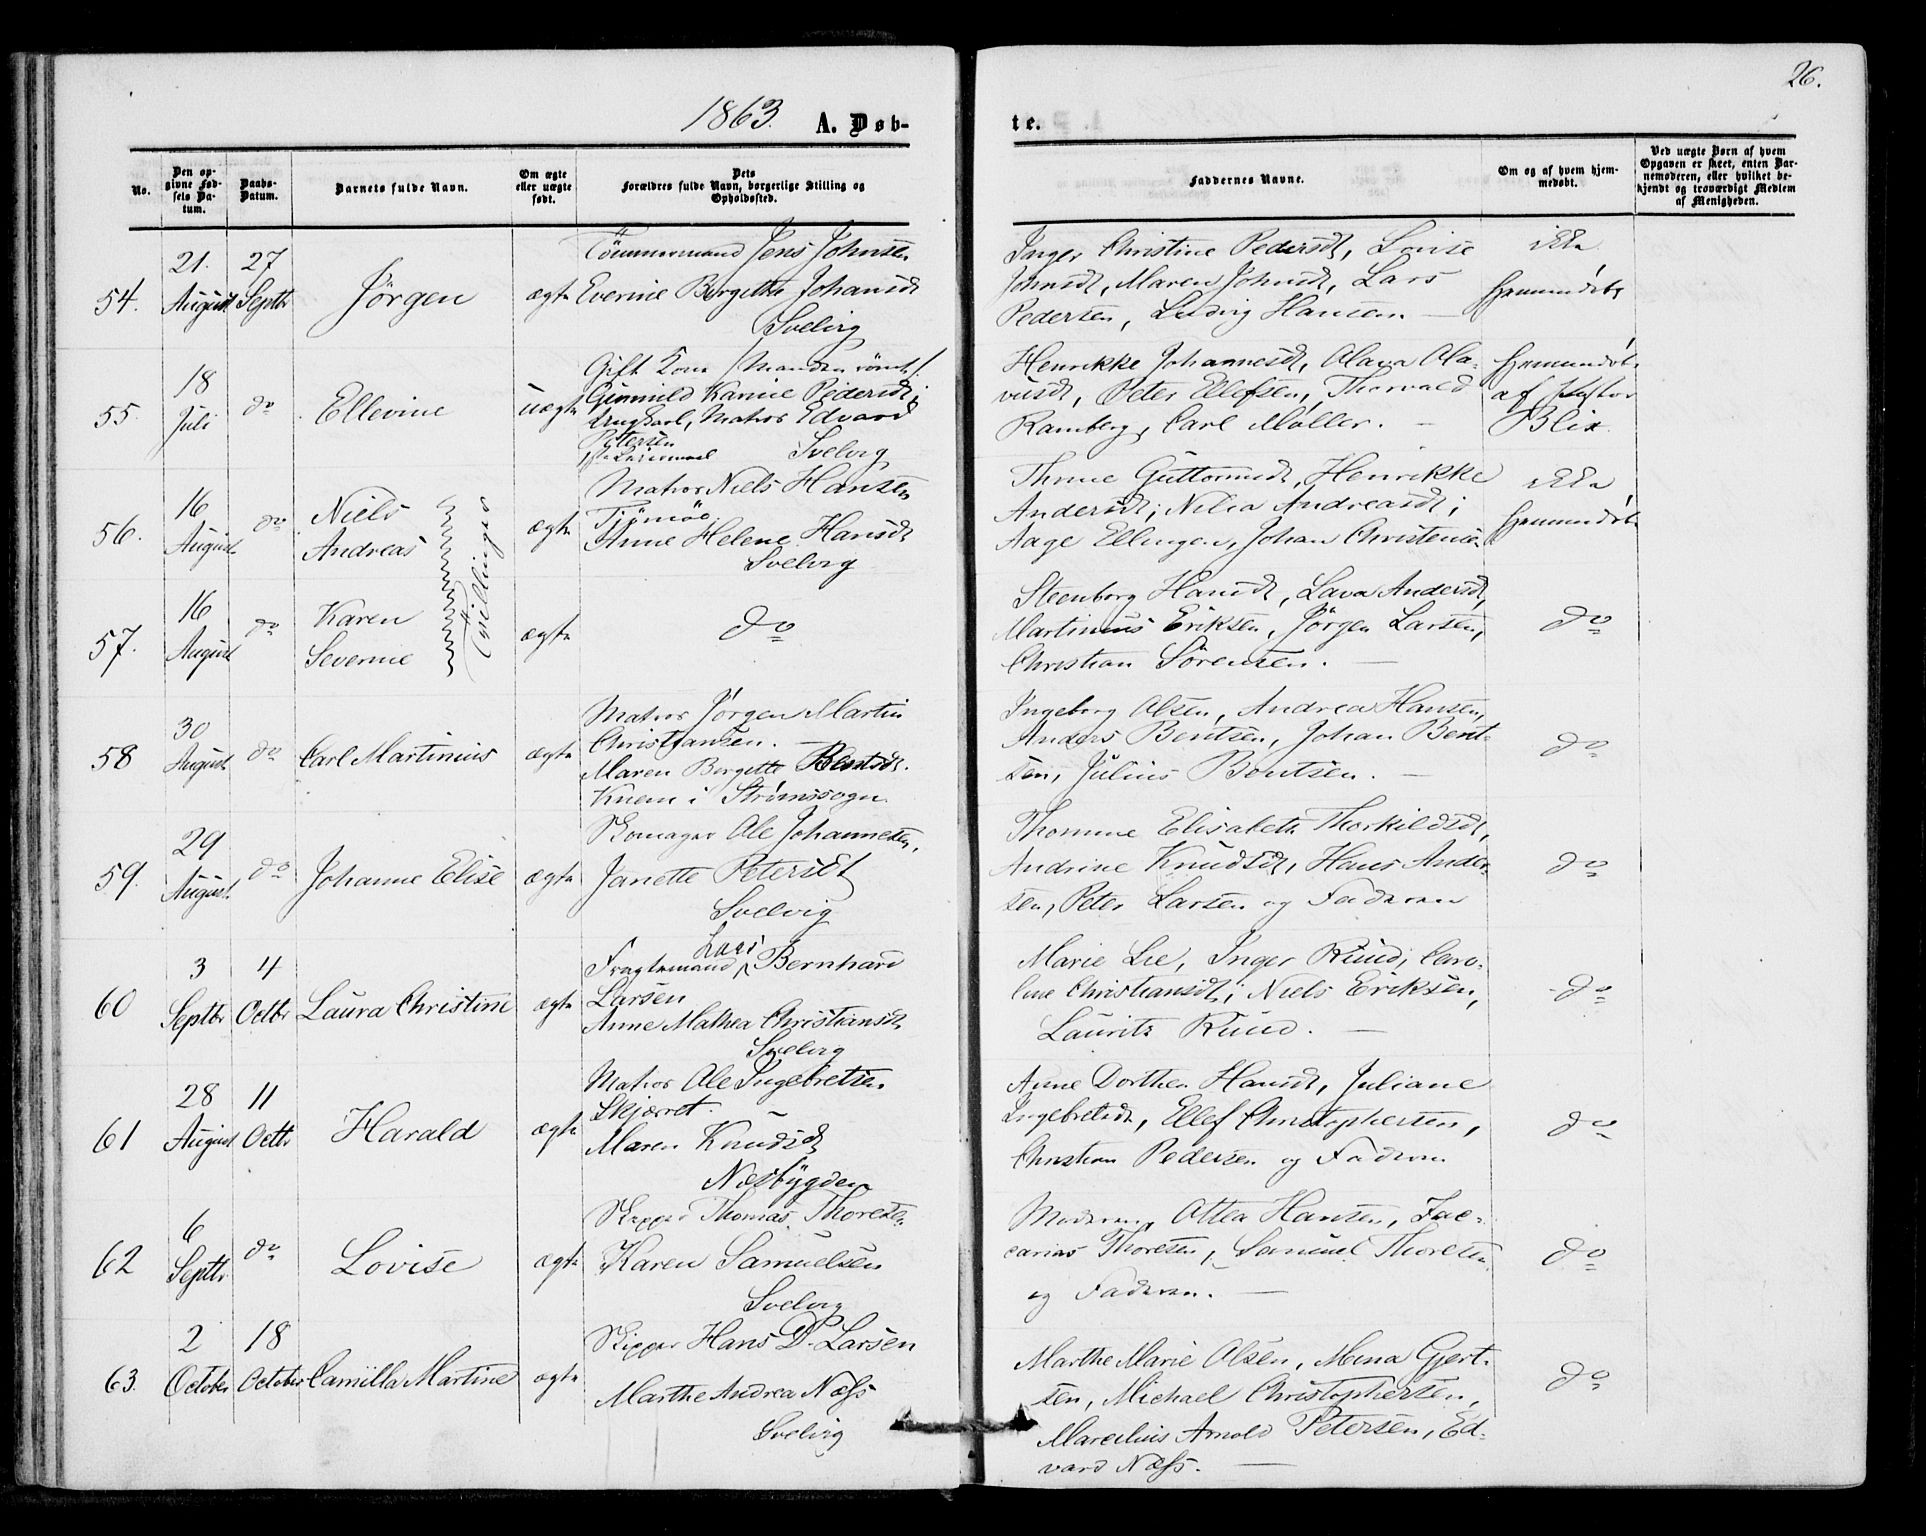 26.
1863. A. Døb-
te.
No.
Den op-
givne Fød-
sels Da-
tum.
Daabs-
Datum.
Barnets fulde Navn.
Om ægte
eller uægte
født.
Dets
Forældres fulde Navn, borgerlige Stilling og
Opholdssted.
Faddernes Navne.
Om og af hvem hjem-
medøbt.
Ved uægte Børn af hvem
Opgaven er skeet, enten Bar-
nemoderen, eller hvilket be-
kjendt og troværdigt Medlem
af Menigheden.
54.
21.
August
27
Septbr
Jørgen
ægte
Tömmermand Jens Johnsen
Everine Borgette Johansdt
Svelvig
Inger Christine Pedersdt, Lovise
Johnsdt, Maren Johnsdt, Lars
Pedersen, Ludvig Hansen. —
ikke
hjemmedøbt
55.
18
Juli
do
Ellevine
uægte
Gift Kone /Manden römt/
Gunnild Karine Pedersdt;
Ungkarl, Matros Edvard
Pettersen
Svelvig
Henrikke Johannesdt, Olava Ola-
vusdt, Peter Ellefsen, Thorvald
Ramberg, Carl Møller. —
hjemmedøbt
af Pastor
Blix
56.
16
August
do
Niels
Andreas
Tvillinger
ægte
Matros Niels Hansen
Tjömöe
Anne Helene Hansdt
Svelvig
Thrine Guttormsdt, Henrikke
Andersdt; Nilia Andreasdt;
Aage Ellingen, Johan Christensen
ikke
hjemmedøbt
57.
16
August
do
Karen
Severine
ægte
do
Steenborg Hansdt, Lava Andersdt,
Martinius Eriksen, Jörgen Larsen,
Christian Sørensen. —
do
58
30
August
do
Carl Martinius
ægte
Matros Jörgen Martin
Christiansen. —
Maren Borgette Bentsdt.
Knem i Strømssogn
Ingeborg Olsen, Andrea Hansen,
Anders Bentsen, Johan Bent-
sen, Julius Bentsen. —
do
59.
29
August
do
Johanne Elise
ægte
Skomager Ole Johannesen,
Janette Petersdt
Svelvig
Thomine Elisabeth Thorkildsdt,
Andrine Knudsdt, Hans Ander-
sen, Peter Larsen og Faderen
do
60
3
Septbr
4
Octbr
Laura Christine
ægte
Lars
Fragtemand Bernhard
Larsen
Anne Mathea Christiansdt
Svelvig
Marie Lie, Inger Ruud, Caro-
line Christiansdt; Niels Eriksen,
Lauritz Ruud. —
do
61
28
August
11
Octbr
Harald
ægte
Matros Ole Ingebretsen
Skjærret.
Maren Knudsdt
Næsbygden
Anne Dorthea Hansdt, Juliane
Ingebretsdt, Ellef Christophersen,
Christian Pedersen og Faderen
do
62
6
Septbr
do
Lovise
ægte
Skipper Thomas Thoresen
Karen Samuelsen
Svelvig
Moderen, Ottea Hansen, Zac-
carias Thoresen, Samuel Thoresen
og Faderen. —
do
63.
2
October
18
October
Camilla Martine
ægte
Skipper Hans D. Larsen
Marthe Andrea Næss
Svelvig
Marthe Marie Olsen, Mina Gjert-
sen, Michael Christophersen,
Marcelius Arnold Petersen, Ed-
vard Næss. —
do